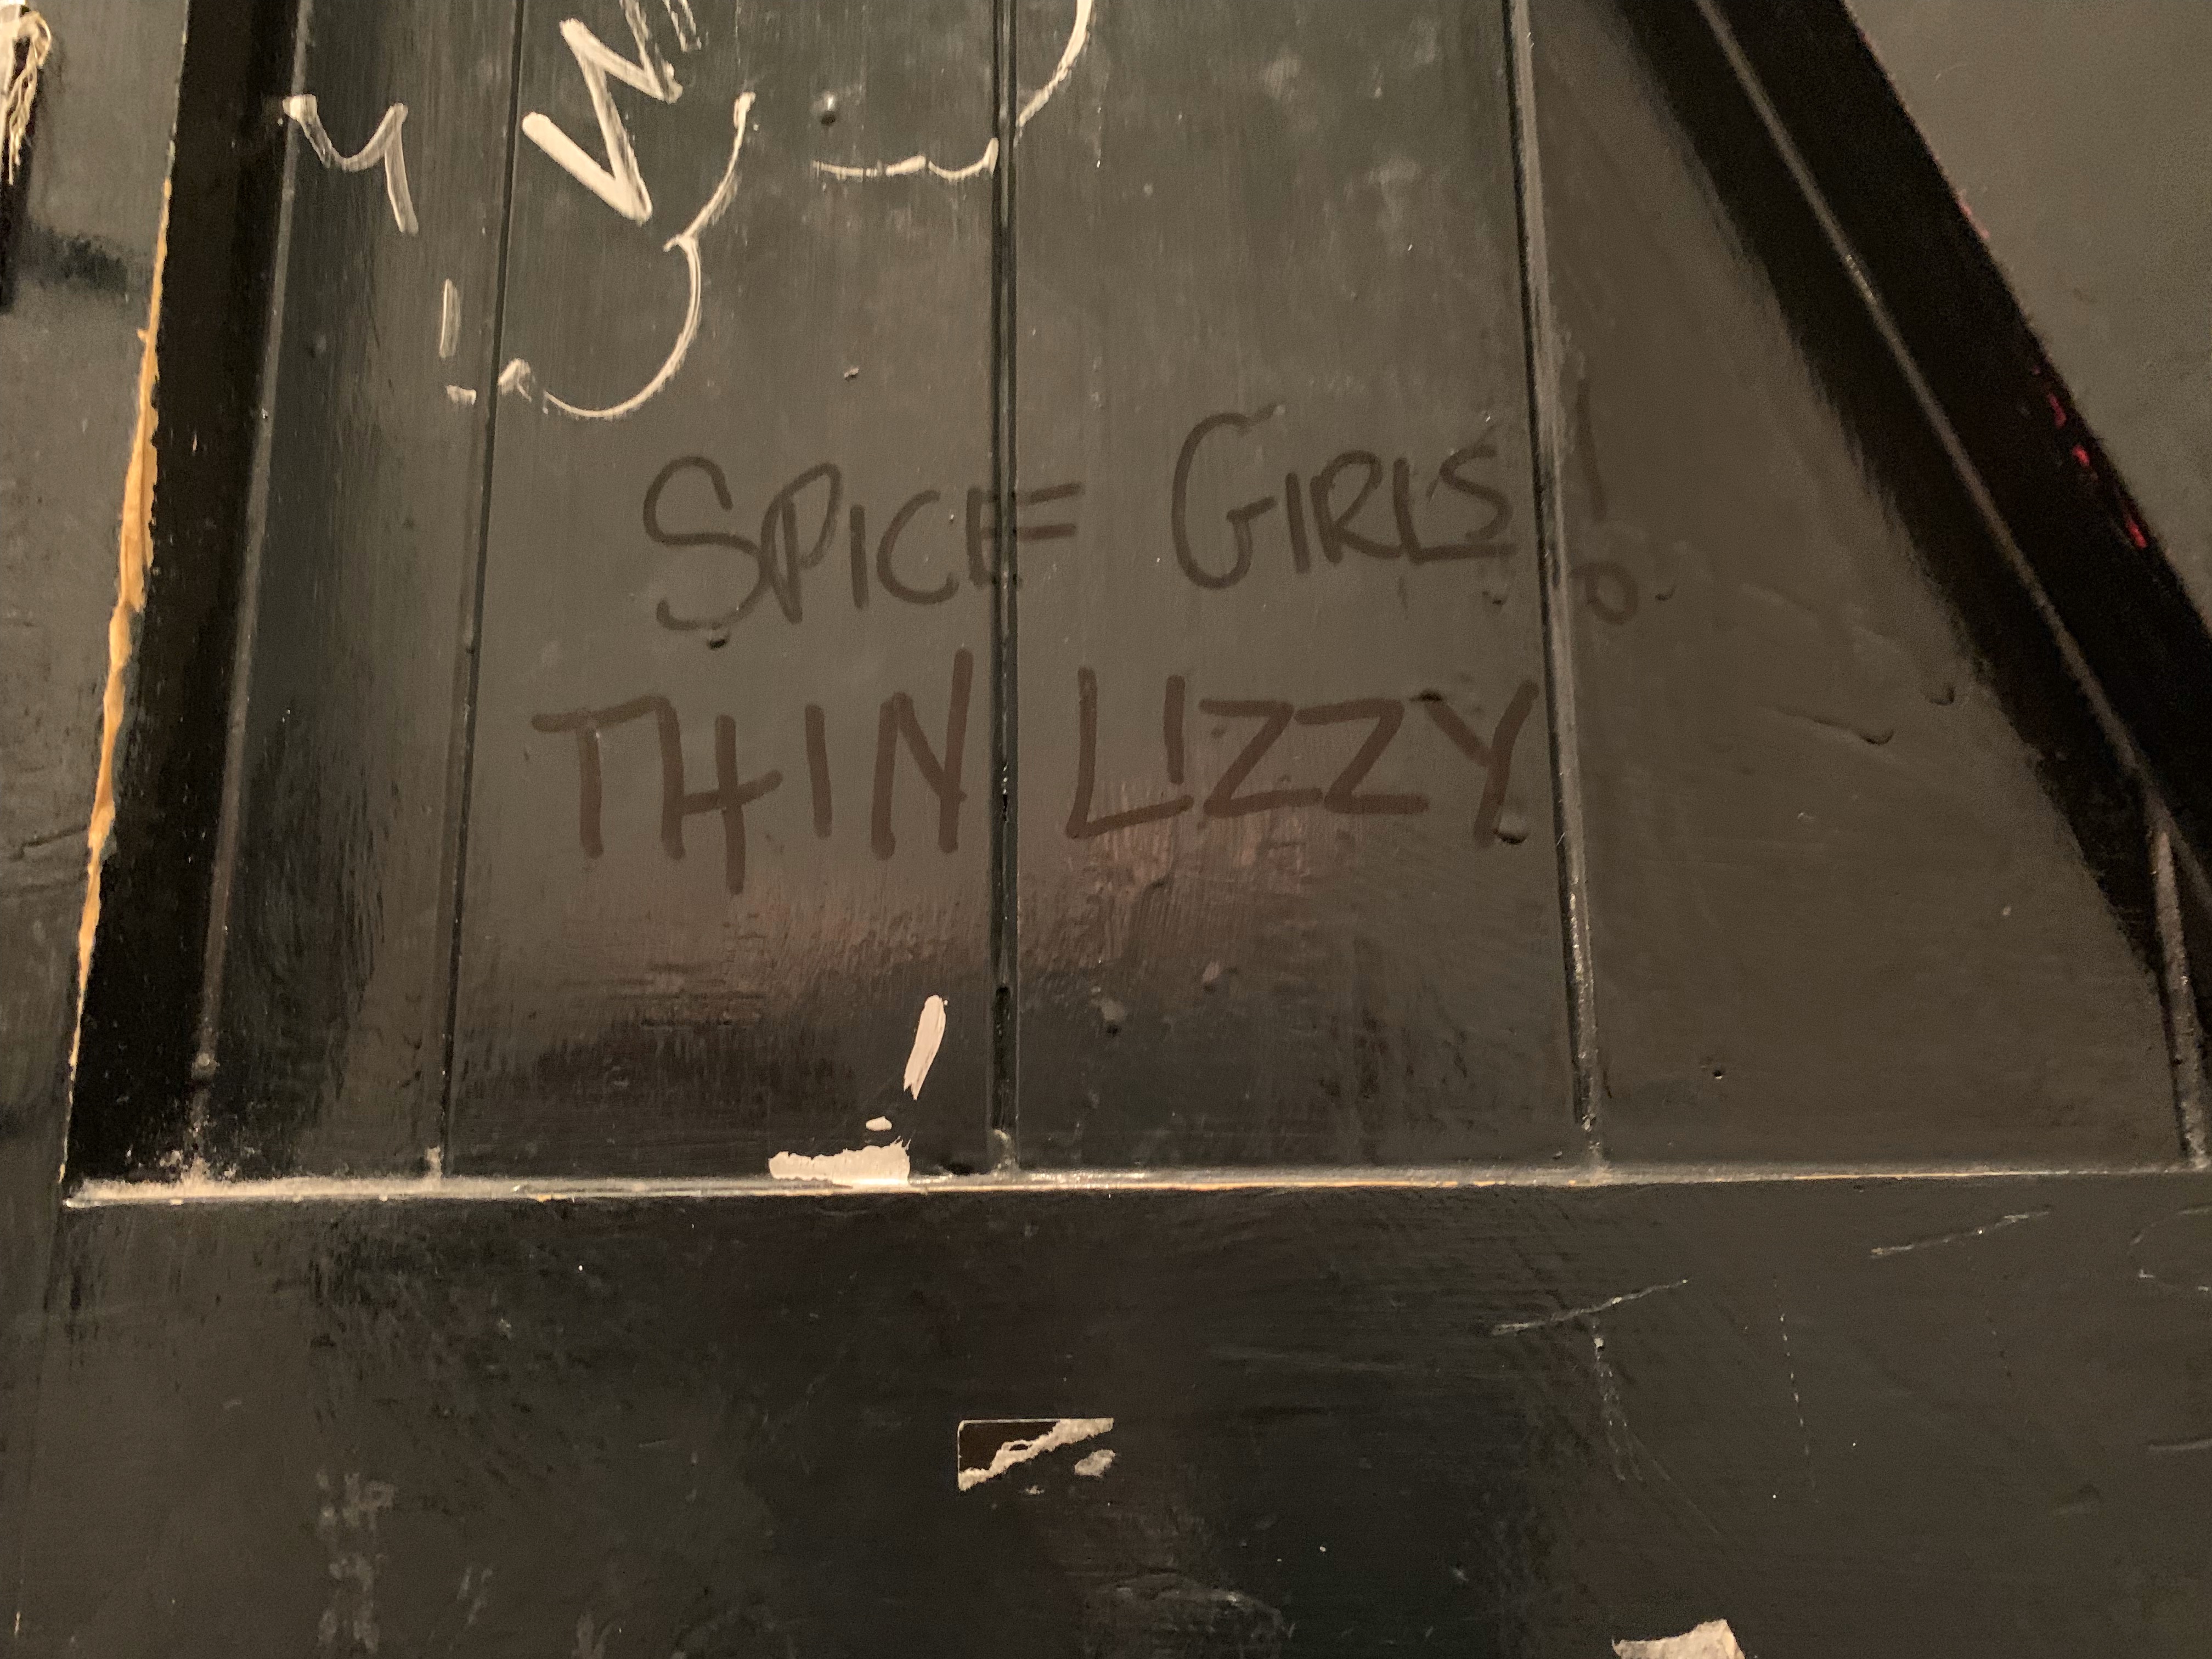 SPICE GIRLS!
THIN LIZZY